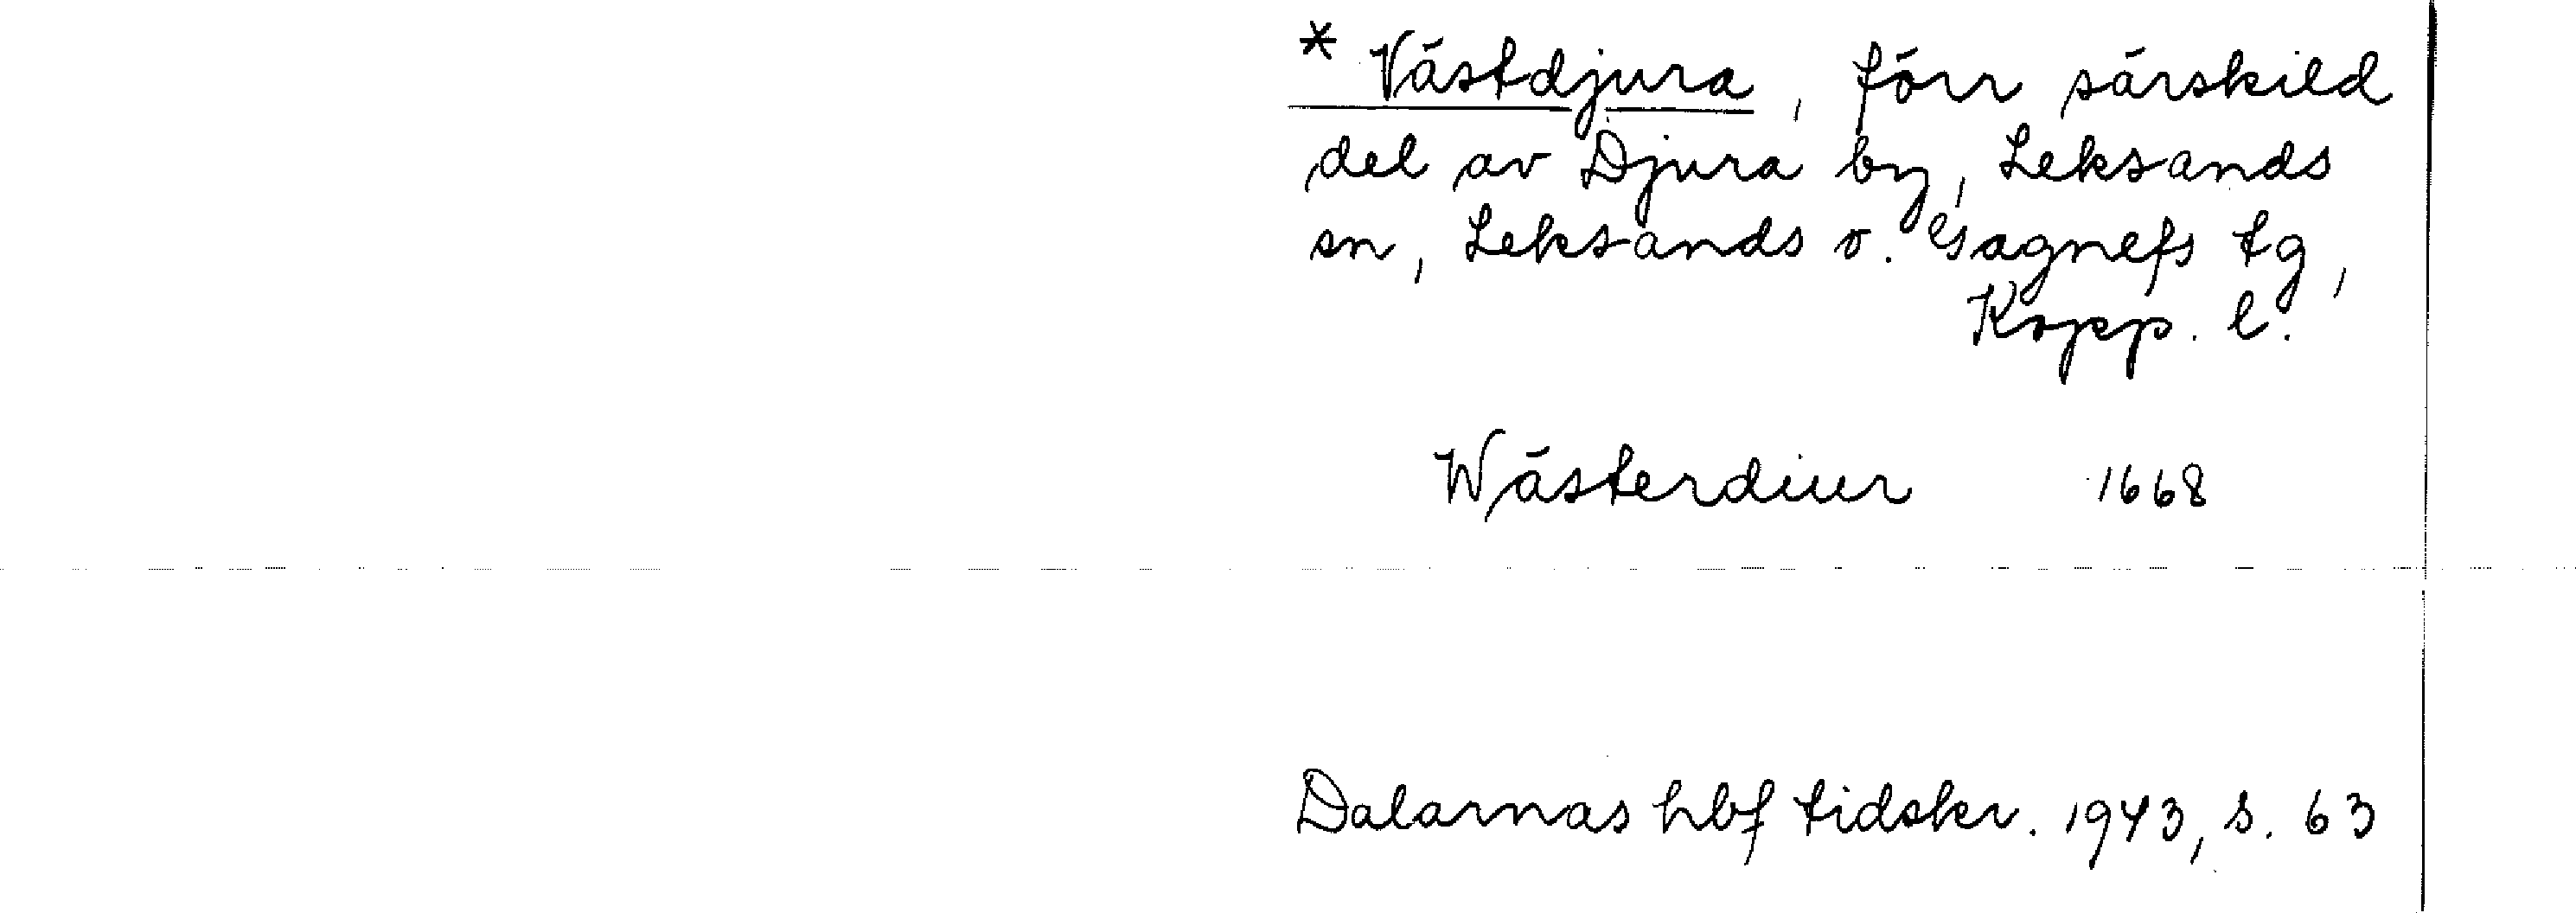 * Västdjura, förr särskild
del av Djura by, Leksands
sn, Leksands o. Gagnefs tg,
Kopp. l.
Wästerdiur 1668
Dalarnas hbf tidskr. 1943, s. 63